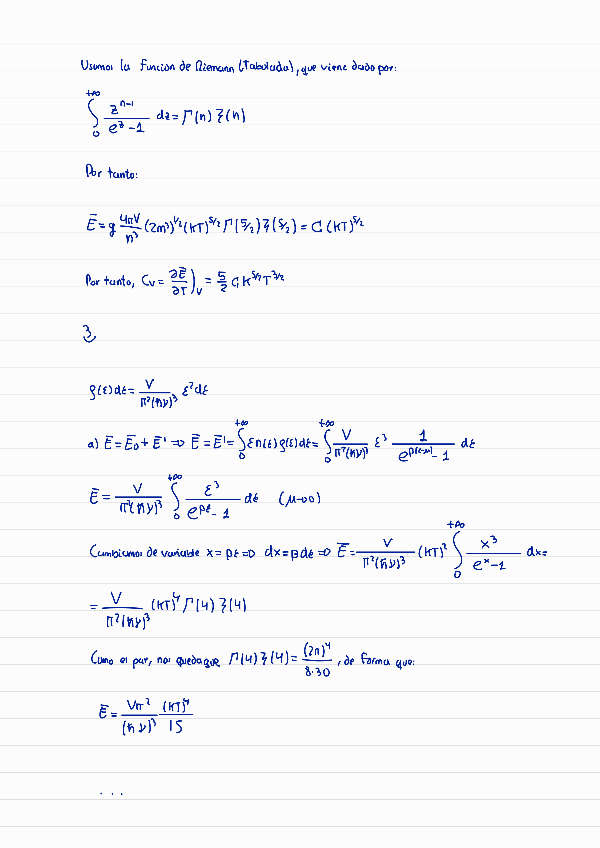 Usamos la función de Riemann (Tabulada), que viene dado por:
∫₀^{+∞} z^{n-1}/(e^z - 1) dz = Γ(n) ζ(n)
Por tanto:
Ē = g 4πV/h³ (2m³)^{1/2} (KT)^{5/2} Γ(5/2) ζ(5/2) = C (KT)^{5/2}
Por tanto, Cv = ∂Ē/∂T)_V = 5/2 C K^{5/2} T^{3/2}
3
ρ(ε)dε = V/(π²(ħν)³) ε² dε
a) Ē = Ē₀ + Ē' ⇒ Ē = Ē' = ∫₀^{+∞} ε n(ε) ρ(ε) dε = ∫₀^{+∞} V/(π²(ħν)³) ε³ 1/(e^{β(ε-μ)} - 1) dε
Ē = V/(π²(ħν)³) ∫₀^{+∞} ε³/(e^{βε} - 1) dε (μ→0)
Cambiamos de variable x = βε ⇒ dx = βdε ⇒ Ē = V/(π²(ħν)³) (KT)² ∫₀^{+∞} x³/(e^x - 1) dx =
= V/(π²(ħν)³) (KT)⁴ Γ(4) ζ(4)
Como es par, nos queda que Γ(4) ζ(4) = (2π)⁴/(8·30), de forma que:
Ē = Vπ²/(ħν)³ (KT)⁴/15
...